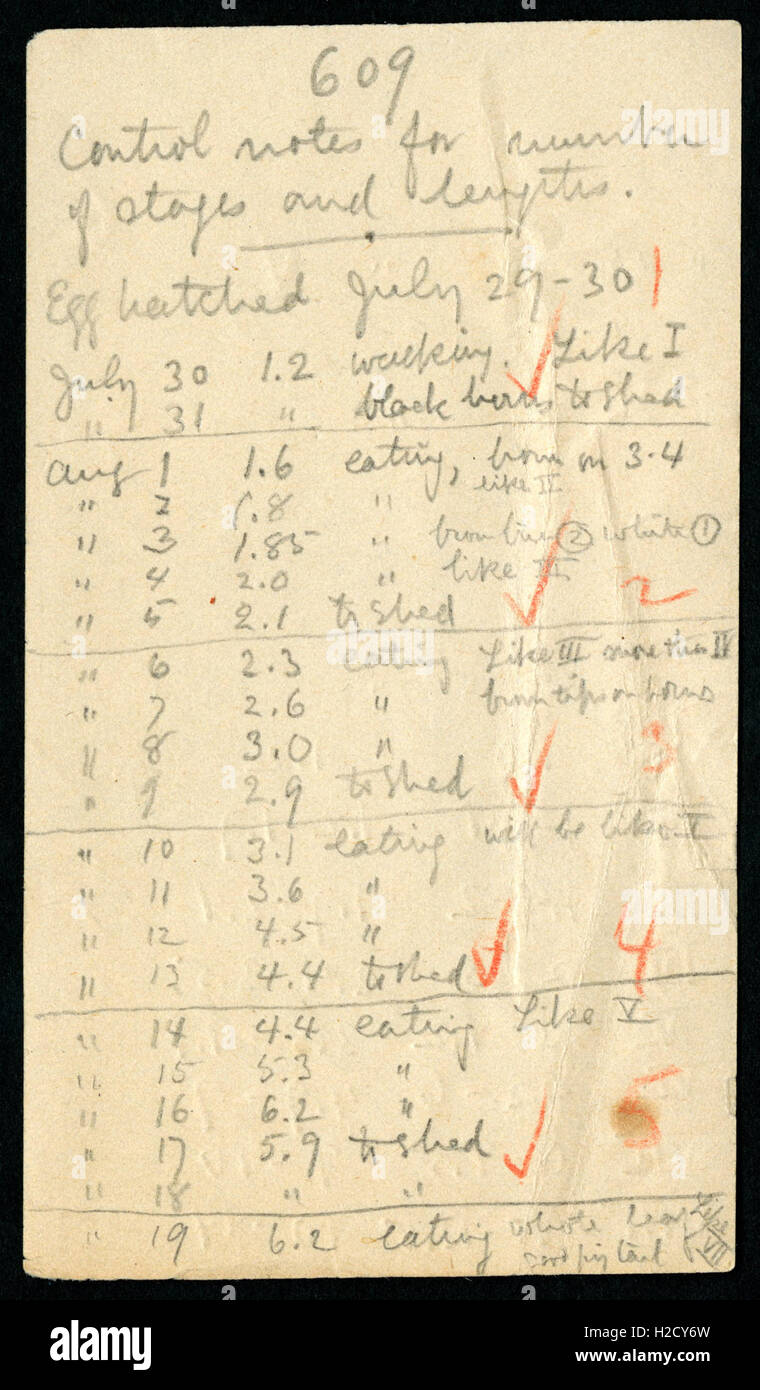 609
Control notes for number
of stages and lengths.
Egg hatched July 29-30 1
July 30 1.2 walking. Like I
" 31 " black horns to shed
Aug 1 1.6 eating, brown on 3.4
like II
" 2 1.8 "
" 3 1.85 " brown (2) white (1)
" 4 2.0 " like III
" 5 2.1 to shed 2
" 6 2.3 eating Like III more than IV
" 7 2.6 " brown tips on horns
" 8 3.0 " 3
" 9 2.9 to shed
" 10 3.1 eating will be like V
" 11 3.6 "
" 12 4.5 " 4
" 13 4.4 to shed
" 14 4.4 eating Like V
" 15 5.3 "
" 16 6.2 " 5
" 17 5.9 to shed
" 18 " "
" 19 6.2 eating whole Like VII
alamy
Image ID: H2CY6W
www.alamy.com